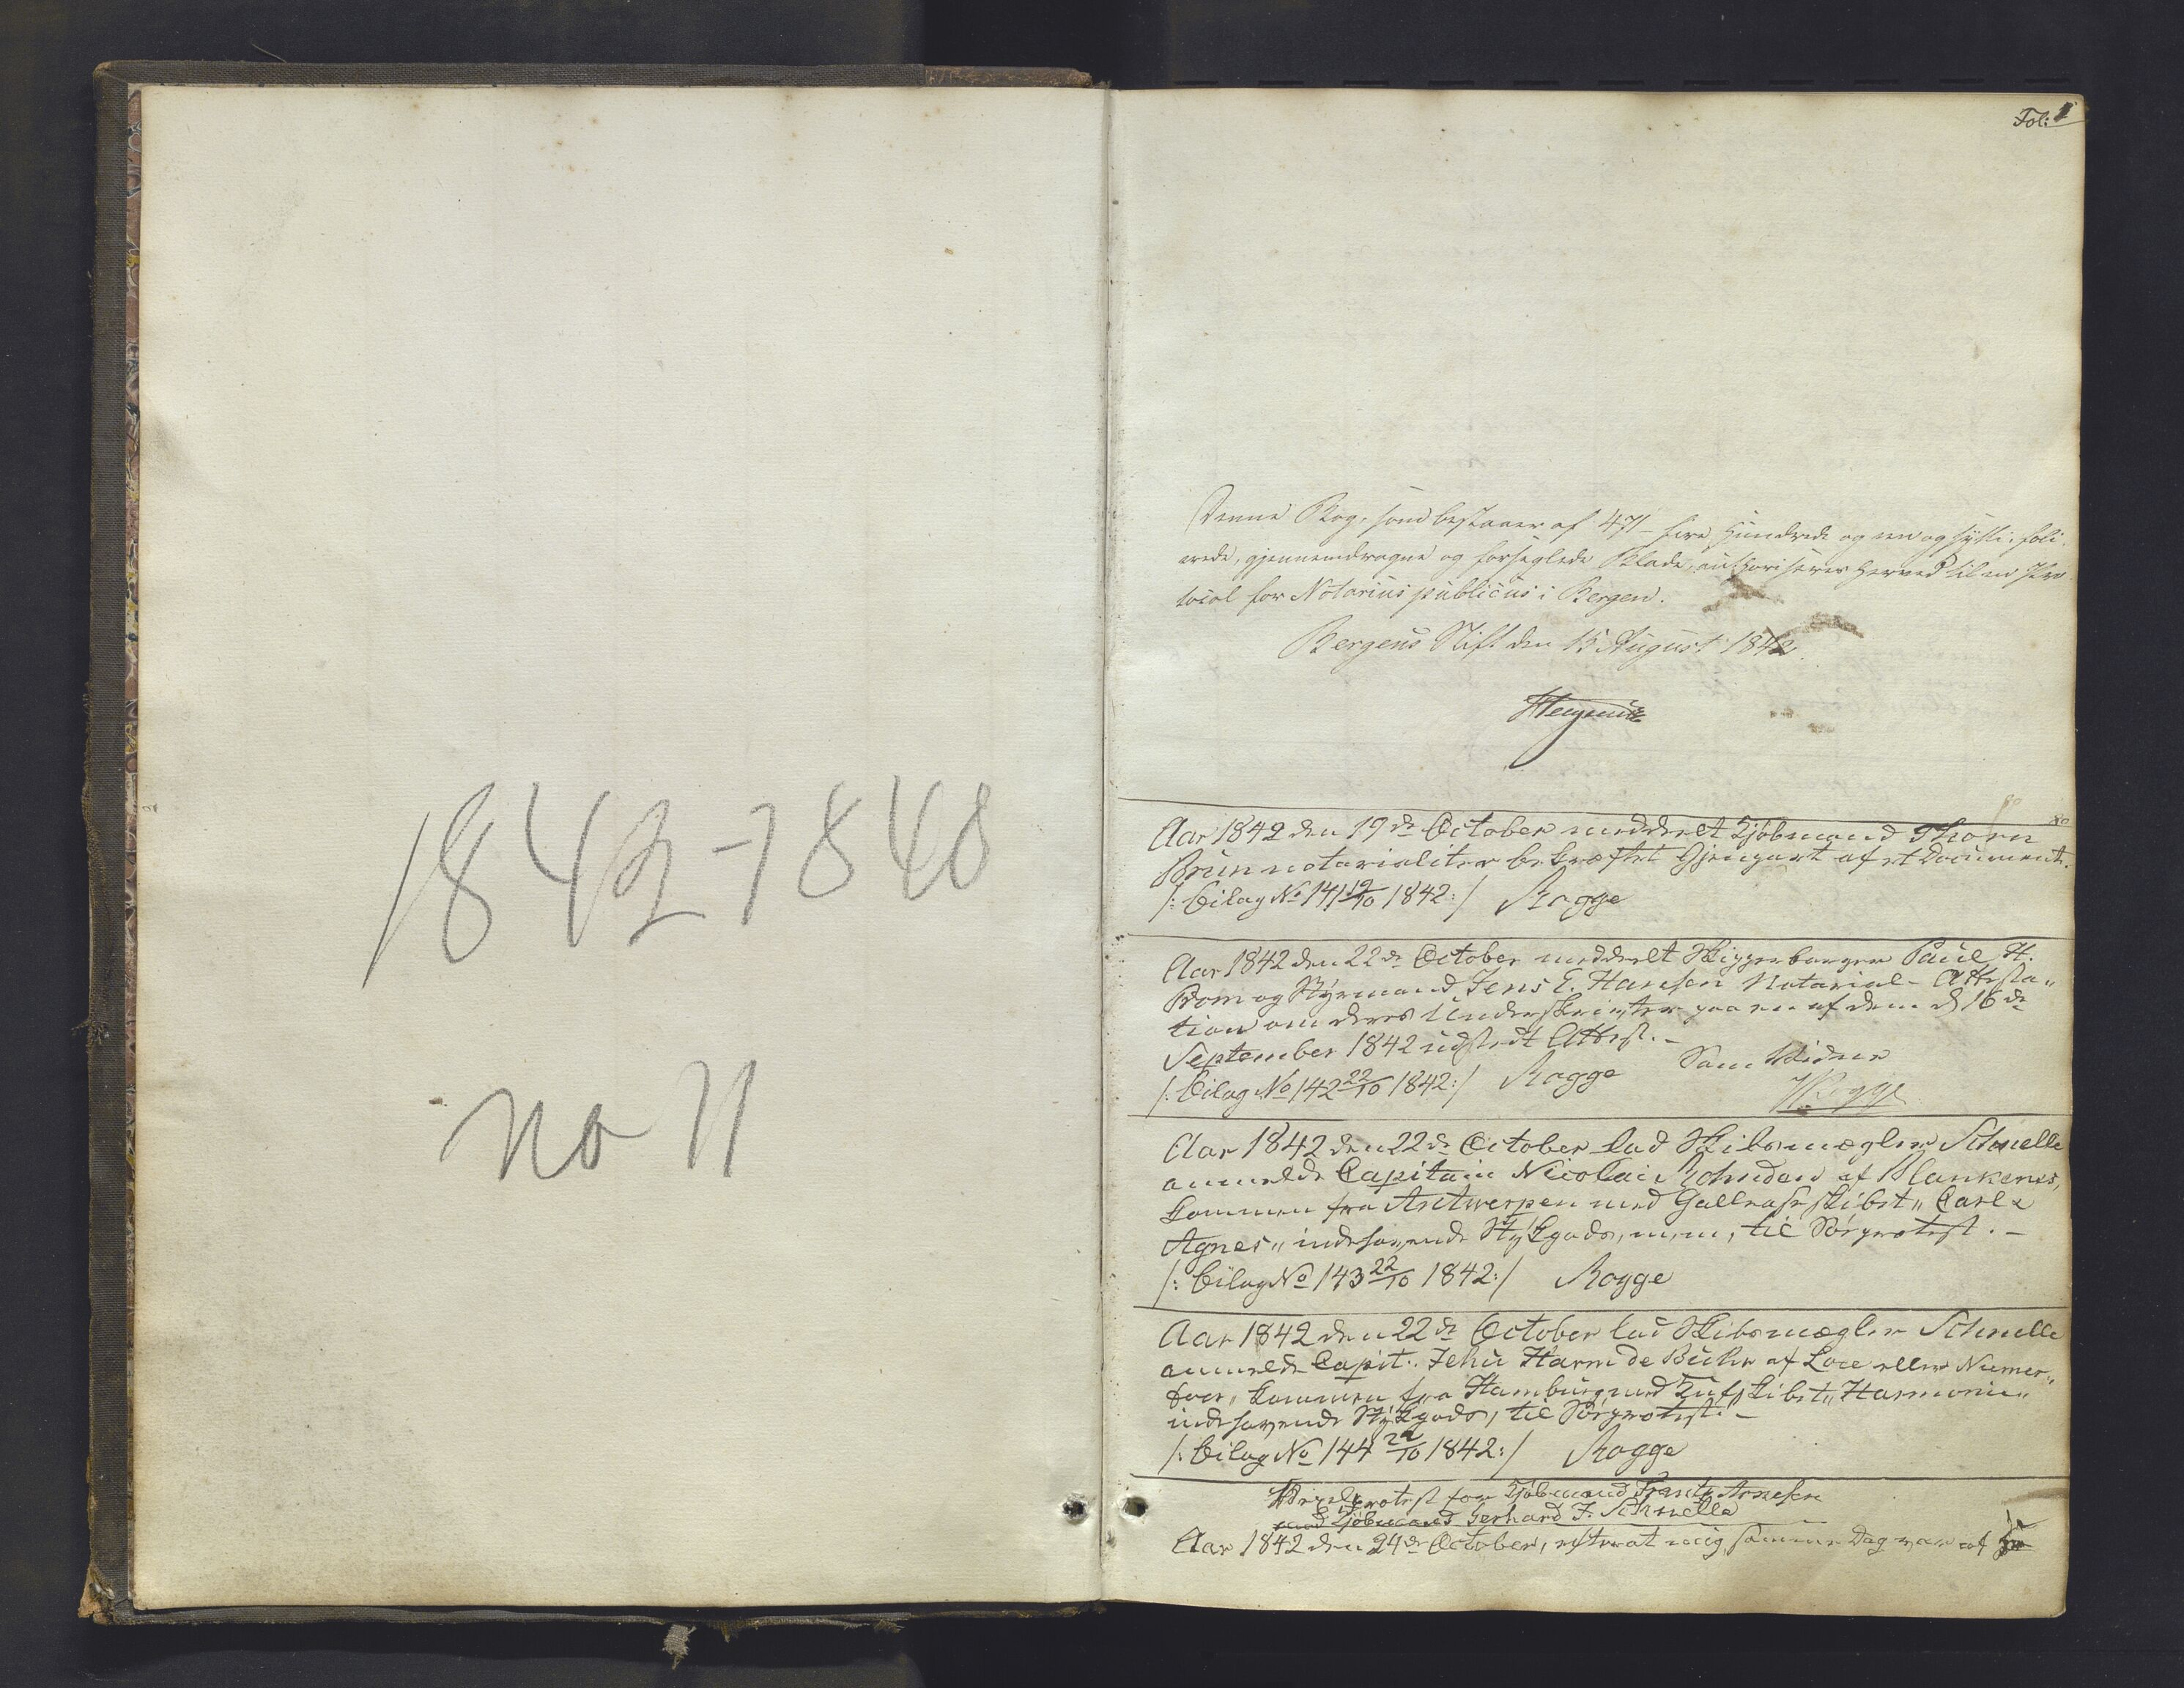 1842-1848
No 11
Fol: 1
Denne Bog, som bestaaer af 471 - fire Hundrede og en og sytti - foli-
erede, gjennemdragne og forseglede Blade, authoriseres herved til en Pro-
tocol for Notarius publicus i Bergen.
Bergens Stift den 15 August 1842.
Aar 1842 den 19de October meddeelt Kjöbmand Thorn
Brun notarialiter bekræftet Gjenpart af et Document.
/: Bilag No 141 19/10 1842 :/ Rogge
Aar 1842 den 22de October meddeelt Skipperborger Paul H.
Brom og Styrmand Jens E. Hansen Notarial-Attesta-
tion om deres Underskrifter paa en af dem d 16de
September 1842 udstedt Attest. -
/: Bilag No 142 22/10 1842 :/ Rogge Som Vidne
Aar 1842 den 22de October lod Skibsmægler Schnelle
anmelde Capitain Nicolai Rohnden af Blankenes,
kommen fra Antwerpen med Galleasskibet "Carl &
Agnes" indehavende Stykgods, m.m., til Söeprotest. -
/: Bilag No 143 22/10 1842 :/ Rogge
Aar 1842 den 22de October lod Skibsmægler Schnelle
anmelde Capit. Jehu Harm de Buhr af eller
kommen fra Hamburg med Kufskibet "Harmonie"
indehavende Stykgods, til Söeprotest. -
/: Bilag No 144 22/10 1842 :/ Rogge
Vexelprotest for Kjöbmand Frantz Arnesen
mod Kjöbmand Gerhard J. Schnelle
Aar 1842 den 24de October, efterat mig samme Dag var af